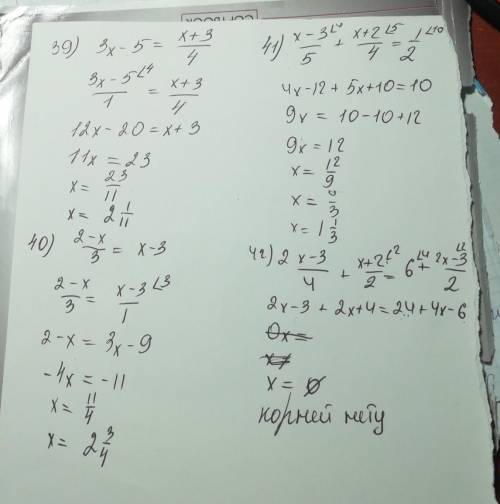 39) 3x - 5 = (x+3)/4
(3x-5)/1 ∟4 = (x+3)/4
12x - 20 = x + 3
11x = 23
x = 23/11
x = 2 1/11
40) (2-x)/3 = x - 3
(2-x)/3 = (x-3)/1 ∟3
2 - x = 3x - 9
-4x = -11
x = 11/4
x = 2 3/4
41) (x-3)/5 ∟4 + (x+2)/4 ∟5 = 1/2 ∟10
4x - 12 + 5x + 10 = 10
9x = 10 - 10 + 12
9x = 12
x = 12/9
x = 4/3
x = 1 1/3
42) (2x-3)/4 + (x+2)/2 ∟2 = 6 ∟4 + (2x-3)/2 ∟2
2x - 3 + 2x + 4 = 24 + 4x - 6
0x =
x = ∅
корней нету